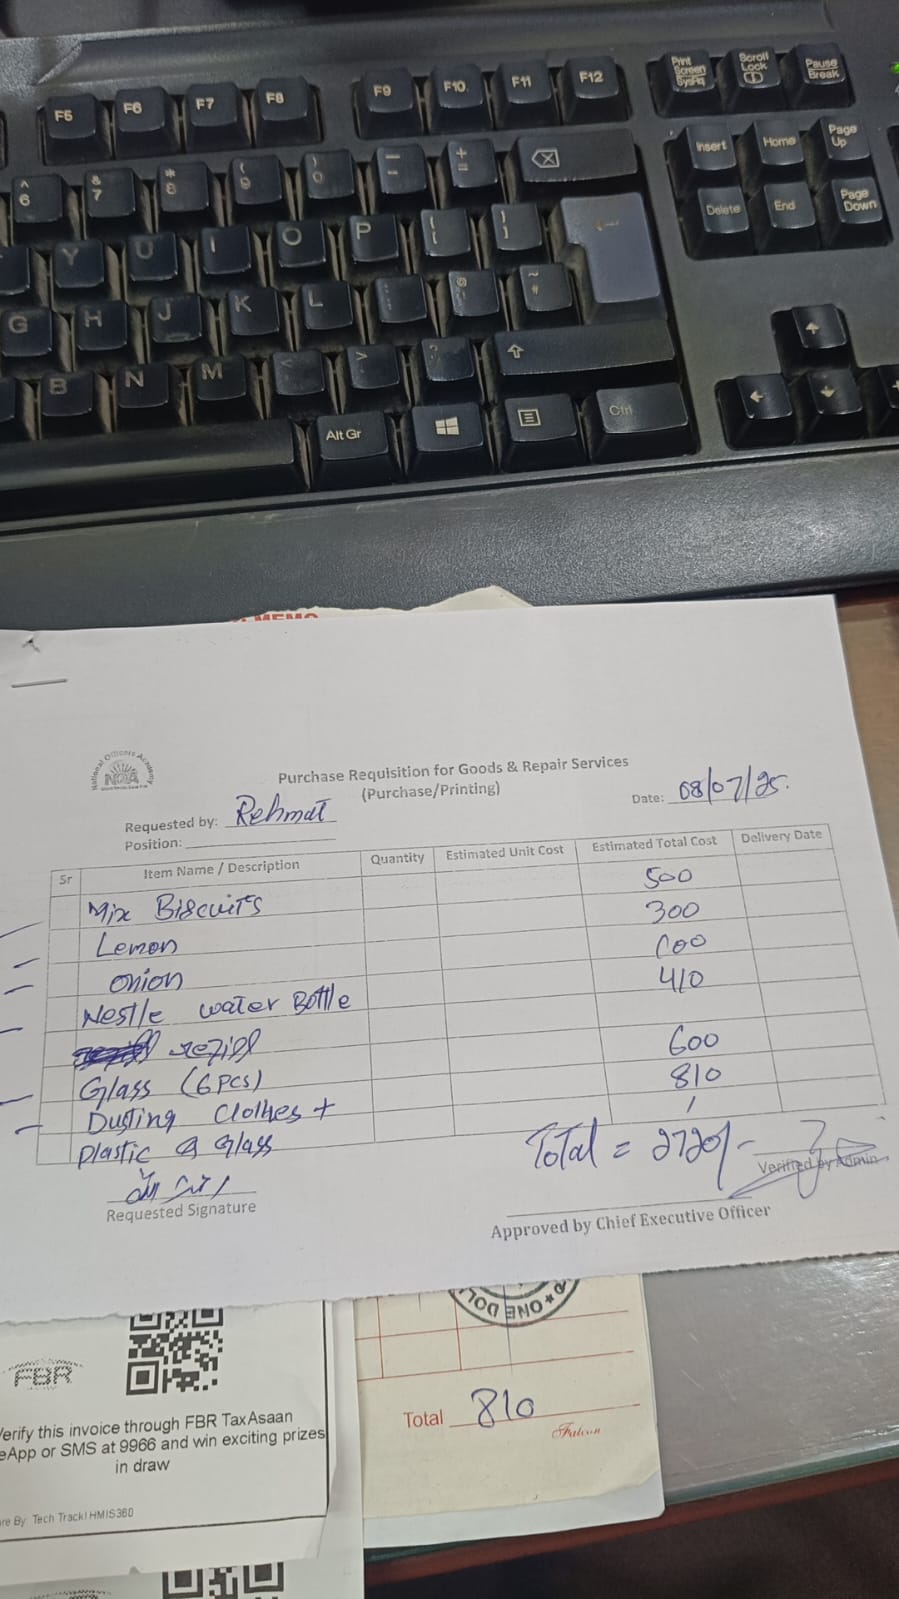 F5 F6 F7 F8 F9 F10 F11 F12 Print Screen SysRq Scroll Lock Pause Break
^ 6 & 7 * 8 ( 9 ) 0 — - + = Insert Home Page Up
Y U I O P { [ } ] Delete End Page Down
G H J K L : ; @ ' ~ #
B N M < > ?
Alt Gr Ctrl
MEMO
National Officers Academy
NOA
Purchase Requisition for Goods & Repair Services
(Purchase/Printing)
Requested by: Rehmat
Date: 08/07/25.
Position:
Sr Item Name / Description Quantity Estimated Unit Cost Estimated Total Cost Delivery Date
Mix Biscuits 500
Lemon 300
Onion 100
Nestle water Bottle 410
refill
Glass (6 Pcs) 600
Dusting Clothes + 810
Plastic & Glass
Total = 2720/-
Verified by Admin
Requested Signature
Approved by Chief Executive Officer
ONE DOL
FBR
Verify this invoice through FBR TaxAsaan
eApp or SMS at 9966 and win exciting prizes
in draw
Total 810
Falcon
are By Tech Track| HMIS360